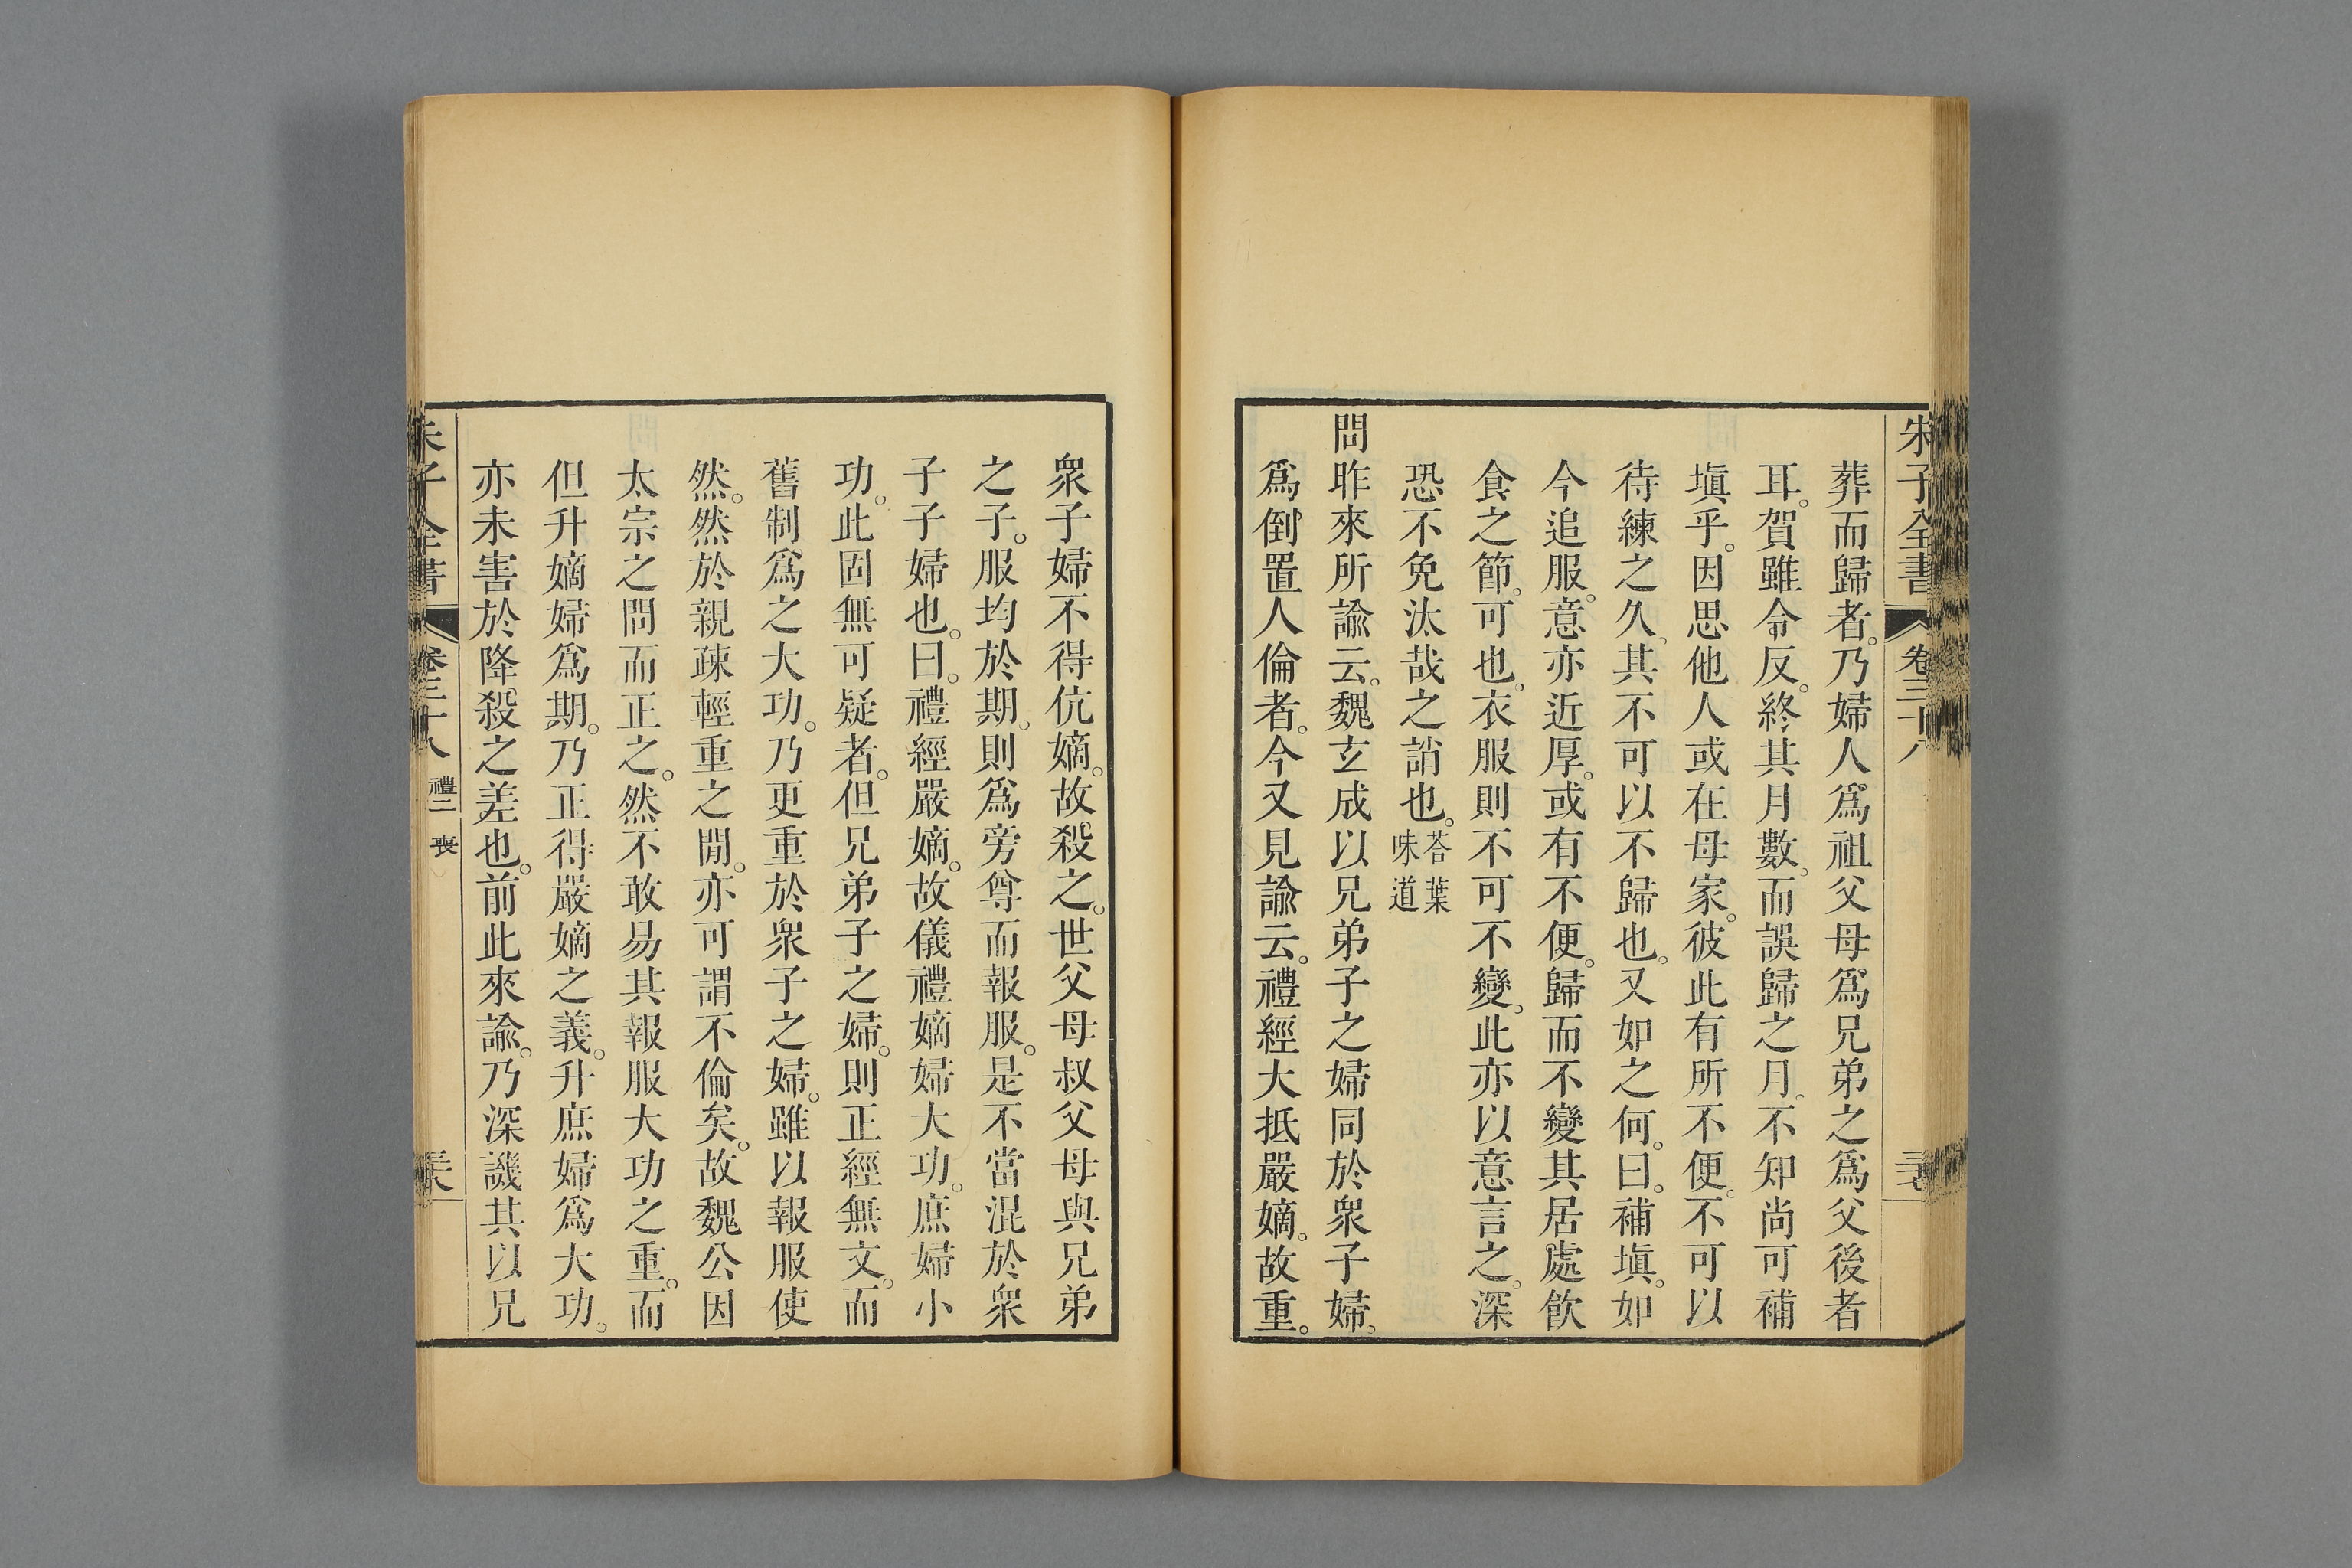 朱子全書 卷三十八
葬而歸者。乃婦人爲祖父母爲兄弟之爲父後者
耳。賀雖令反。終其月數。而誤歸之月。不知尚可補
塡乎。因思他人或在母家。彼此有所不便。不可以
待練之久。其不可以不歸也。又如之何。曰。補塡。如
今追服。意亦近厚。或有不便。歸而不變其居處飮
食之節。可也。衣服則不可不變。此亦以意言之。深
恐不免汰哉之誚也。荅葉味道
問昨來所諭云。魏玄成以兄弟子之婦同於衆子婦。
爲倒置人倫者。今又見諭云。禮經大抵嚴嫡。故重。
衆子婦不得伉嫡。故殺之。世父母叔父母與兄弟
之子。服均於期。則爲旁尊而報服。是不當混於衆
子子婦也。曰。禮經嚴嫡。故儀禮嫡婦大功。庶婦小
功。此固無可疑者。但兄弟子之婦。則正經無文。而
舊制爲之大功。乃更重於衆子之婦。雖以報服使
然。然於親疎輕重之閒。亦可謂不倫矣。故魏公因
太宗之問而正之。然不敢易其報服大功之重。而
但升嫡婦爲期。乃正得嚴嫡之義。升庶婦爲大功。
亦未害於降殺之差也。前此來諭。乃深譏其以兄
朱子全書 卷三十八 禮二 喪